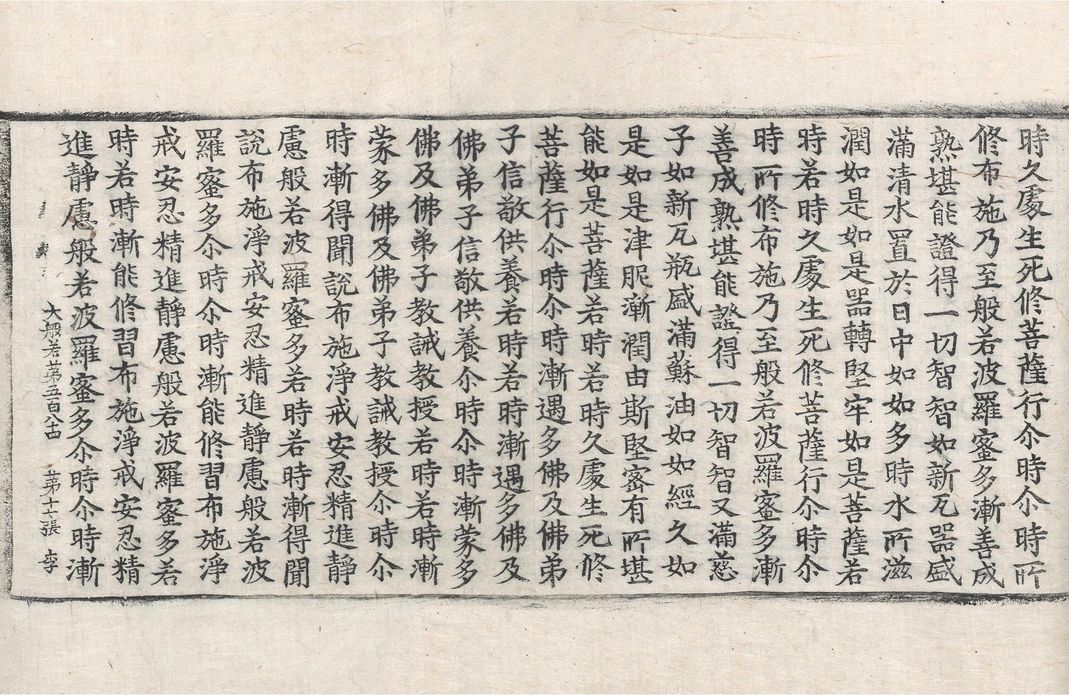 時久處生死修菩薩行尒時尒時所
修布施乃至般若波羅蜜多漸善成
熟堪能證得一切智智如新瓦器盛
滿清水置於日中如如多時水所滋
潤如是如是器轉堅牢如是菩薩若
時若時久處生死修菩薩行尒時尒
時所修布施乃至般若波羅蜜多漸
善成熟堪能證得一切智智又滿慈
子如新瓦瓶盛滿蘇油如如經久如
是如是津膩漸潤由斯堅密有所堪
能如是菩薩若時若時久處生死修
菩薩行尒時尒時漸遇多佛及佛弟
子信敬供養若時若時漸遇多佛及
佛弟子信敬供養尒時尒時漸蒙多
佛及佛弟子教誡教授若時若時漸
蒙多佛及佛弟子教誡教授尒時尒
時漸得聞說布施淨戒安忍精進靜
慮般若波羅蜜多若時若時漸得聞
說布施淨戒安忍精進靜慮般若波
羅蜜多尒時尒時漸能修習布施淨
戒安忍精進靜慮般若波羅蜜多若
時若時漸能修習布施淨戒安忍精
進靜慮般若波羅蜜多尒時尒時漸
大般若第五百八十四 第十六張 李